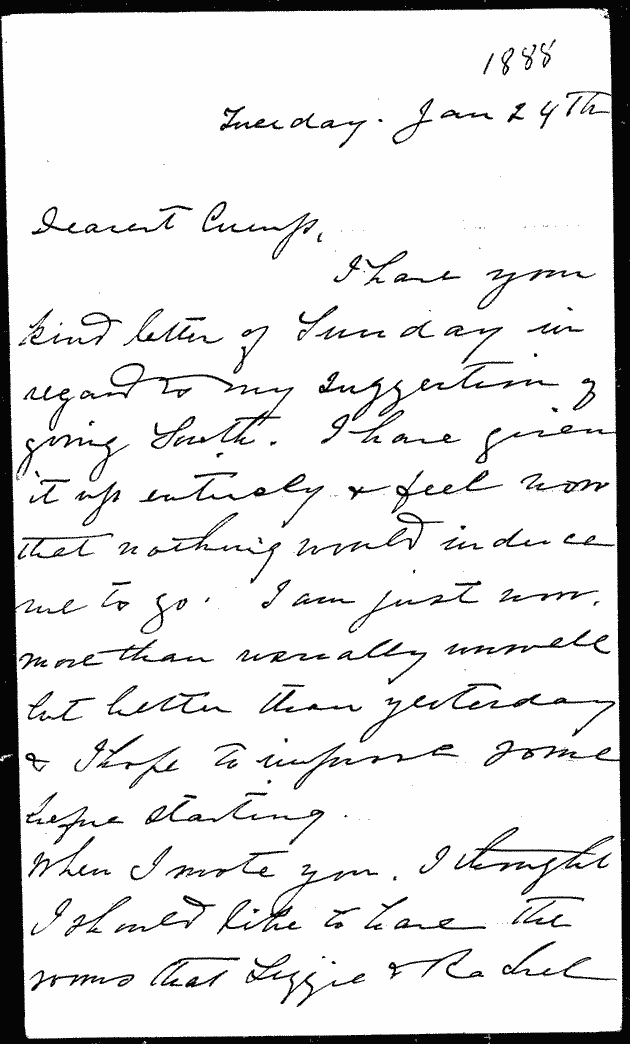 1888
Tuesday. Jan 24th
Dearest Cump,
I have your
kind letter of Sunday in
regard to my suggestion of
going South. I have given
it up entirely & feel now
that nothing would induce
me to go. I am just now,
more than usually unwell
but better than yesterday
& I hope to improve some
before starting.
When I wrote you, I thought
I should like to have the
rooms that Lizzie & Rachel